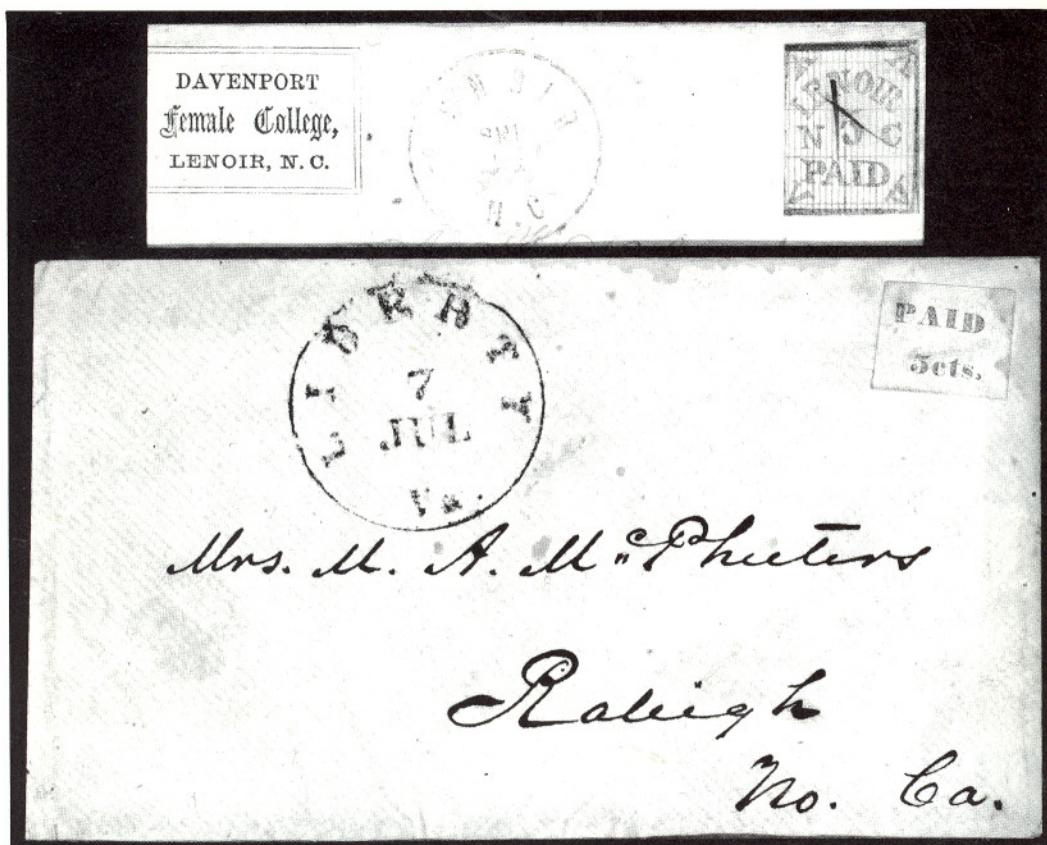 DAVENPORT
Female College,
LENOIR, N. C.
LENOIR
N. C.
LENOIR
N 5 C
PAID
LIBERTY
7
JUL
Va.
PAID
5cts.
Mrs. M. A. McPheeters
Raleigh
No. Ca.